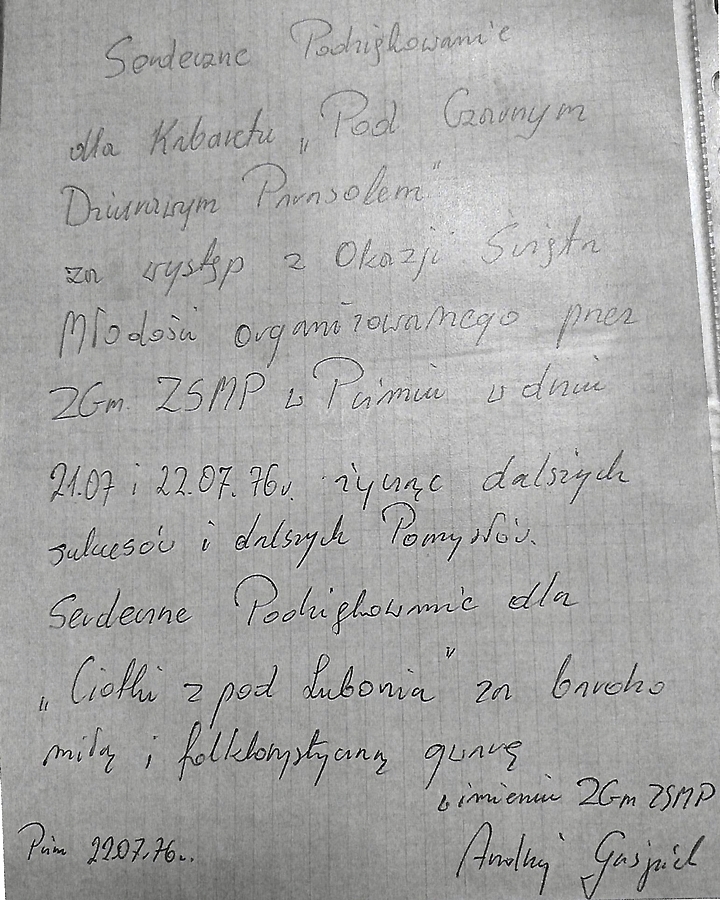 Serdeczne Podziękowanie
dla Kabaretu „Pod Czarnym
Dziurawym Parasolem"
za występ z Okazji Święta
Młodości organizowanego przez
ZGm. ZSMP w Pcimiu w dniu
21.07 i 22.07.76r. życząc dalszych
sukcesów i dalszych Pomysłów.
Serdeczne Podziękowanie dla
„Ciotki z pod Lubonia" za bardzo
miłą i folklorystyczną gwarę
w imieniu ZGm ZSMP
Pcim 22.07.76r. Andrzej